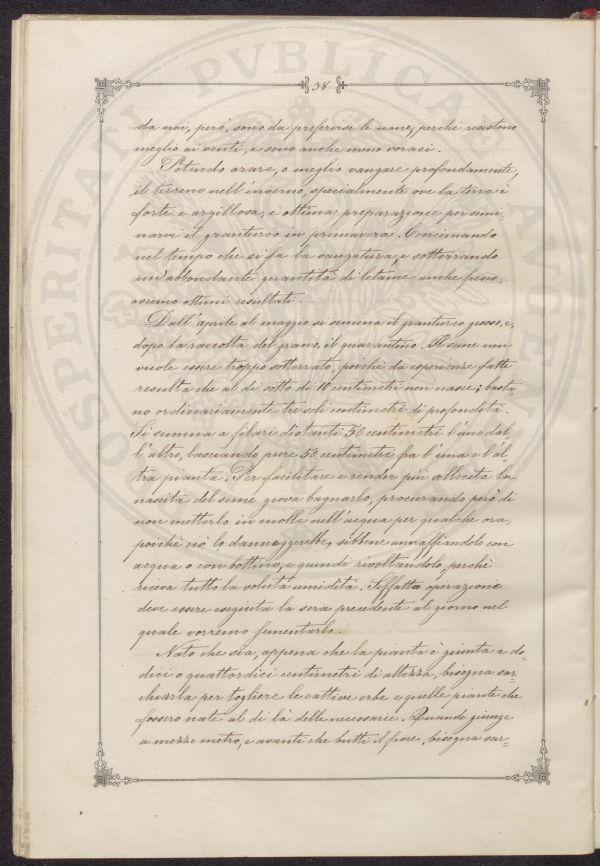 38
da noi, però, sono da preferirsi le nane, perchè resistono
meglio ai venti, e sono anche meno voraci.
Potendo arare, o meglio vangare profondamente,
il terreno nell'inverno, specialmente ove la terra è
forte e argillosa, è ottima preparazione per semi-
narvi il granturco in primavera. Concimando
nel tempo che si fa la vangatura, e sotterrando
un'abbondante quantità di letame anche fresco,
avremo ottimi resultati.
Dall'aprile al maggio si semina il granturco grosso, e,
dopo la raccolta del grano, il quarantino. Il seme non
vuole essere troppo sotterrato, poichè da esperienze fatte
resulta che al di sotto di 10 centimetri non nasce; basta-
no ordinariamente tre soli centimetri di profondità.
Si semina a filari distanti 50 centimetri l'uno dal-
l'altro, lasciando pure 50 centimetri fra l'una e l'al-
tra pianta. Per facilitare e render più sollecita la
nascita del seme giova bagnarlo, procurando però di
non metterlo in molle nell'acqua per qualche ora,
poichè ciò lo danneggerebbe, sibbene annaffiandolo con
acqua o con bottino, e quindi rivoltandolo, perchè
riceva tutto la voluta umidità. Siffatta operazione
deve essere eseguita la sera precedente al giorno nel
quale vorremo sementarlo.
Nato che sia, appena che la pianta è giunta a do-
dici o quattordici centimetri di altezza, bisogna sar-
chiarla per togliere le cattive erbe e quelle piante che
fossero nate al di là delle necessarie. Quando giunge
a mezzo metro, e avanti che butti il fiore, bisogna sar-
PROSPERITATI PVBLICAE AVGENDAE